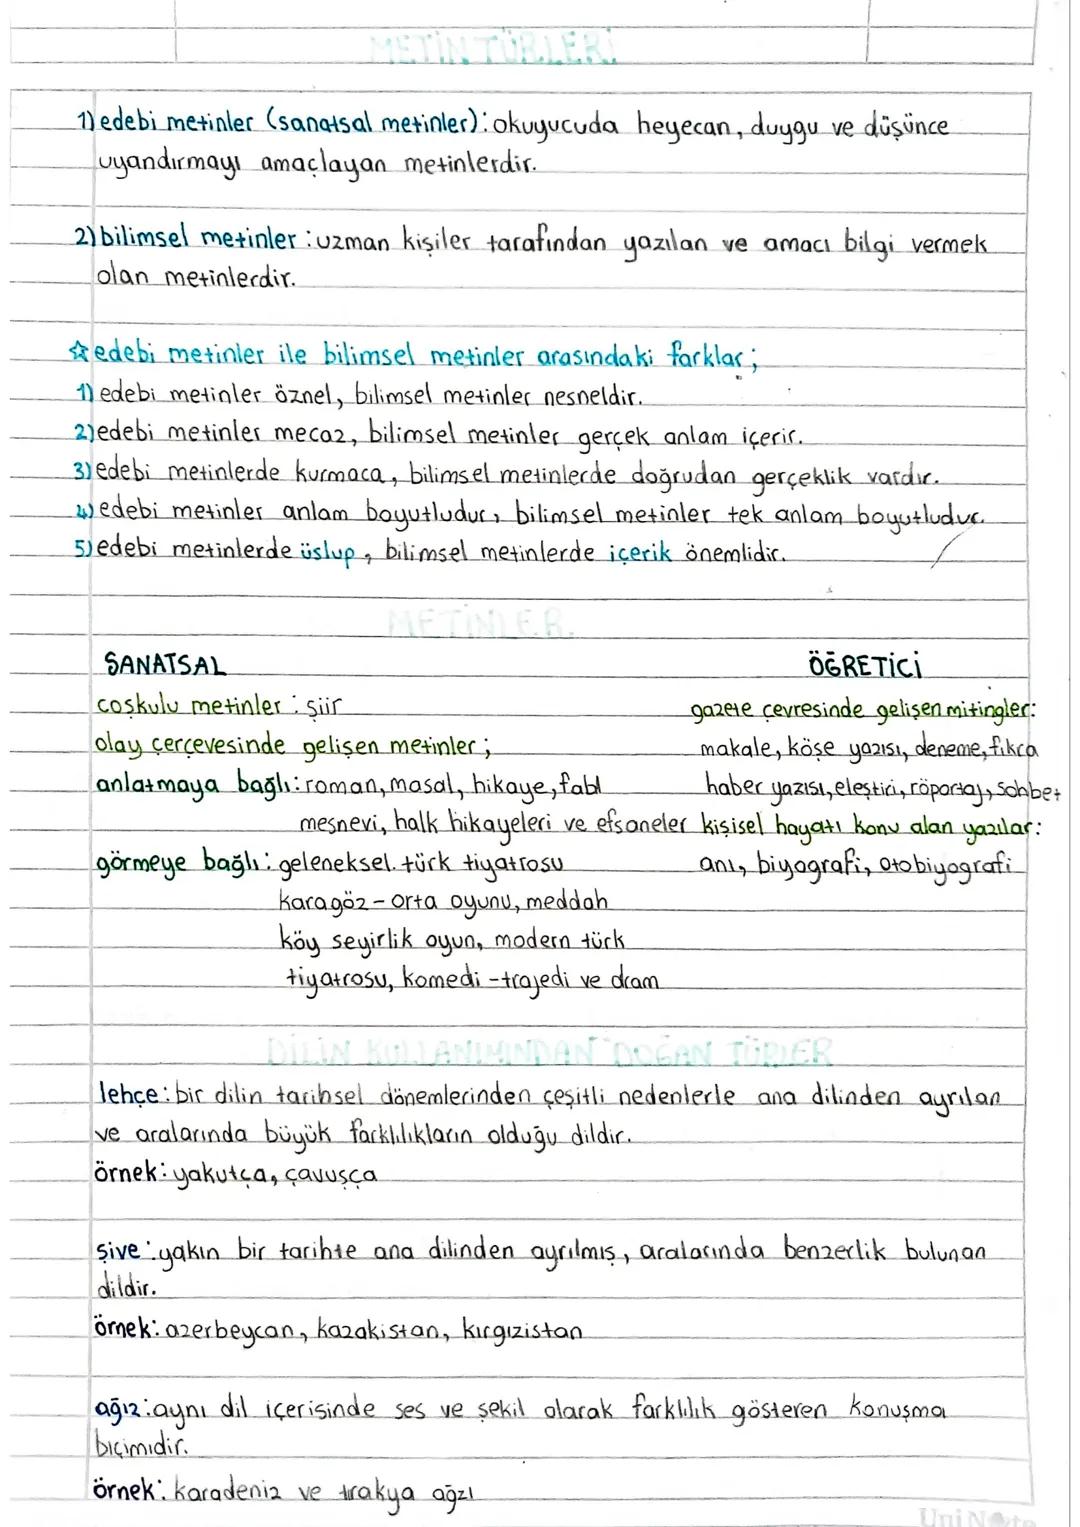 METİN TÜRLERİ
1) edebi metinler (sanatsal metinler): okuyucuda heyecan, duygu ve düşünce
uyandırmayı amaçlayan metinlerdir.
2) bilimsel metinler : uzman kişiler tarafından yazılan ve amacı bilgi vermek
olan metinlerdir.
☆ edebi metinler ile bilimsel metinler arasındaki farklar ;
1) edebi metinler öznel, bilimsel metinler nesneldir.
2) edebi metinler mecaz, bilimsel metinler gerçek anlam içerir.
3) edebi metinlerde kurmaca, bilimsel metinlerde doğrudan gerçeklik vardır.
4) edebi metinler anlam boyutludur, bilimsel metinler tek anlam boyutludur.
5) edebi metinlerde üslup, bilimsel metinlerde içerik önemlidir.
METİNLER
SANATSAL
coşkulu metinler : şiir
olay çerçevesinde gelişen metinler ;
anlatmaya bağlı : roman, masal, hikaye, fabl
mesnevi, halk hikayeleri ve efsaneler
görmeye bağlı : geleneksel türk tiyatrosu
karagöz - orta oyunu, meddah
köy seyirlik oyun, modern türk
tiyatrosu, komedi - trajedi ve dram
ÖĞRETİCİ
gazete çevresinde gelişen mitingler:
makale, köşe yazısı, deneme, fıkra
haber yazısı, eleştiri, röportaj, sohbet
kişisel hayatı konu alan yazılar:
anı, biyografi, otobiyografi
DİLİN KULLANIMINDAN DOĞAN TÜRLER
lehçe : bir dilin tarihsel dönemlerinden çeşitli nedenlerle ana dilinden ayrılan
ve aralarında büyük farklılıkların olduğu dildir.
örnek : yakutça, çavuşça
şive : yakın bir tarihte ana dilinden ayrılmış, aralarında benzerlik bulunan
dildir.
örnek : azerbeycan, kazakistan, kırgızistan
ağız : aynı dil içerisinde ses ve şekil olarak farklılık gösteren konuşma
bıçimıdir.
örnek : karadeniz ve trakya ağzı
UniNote